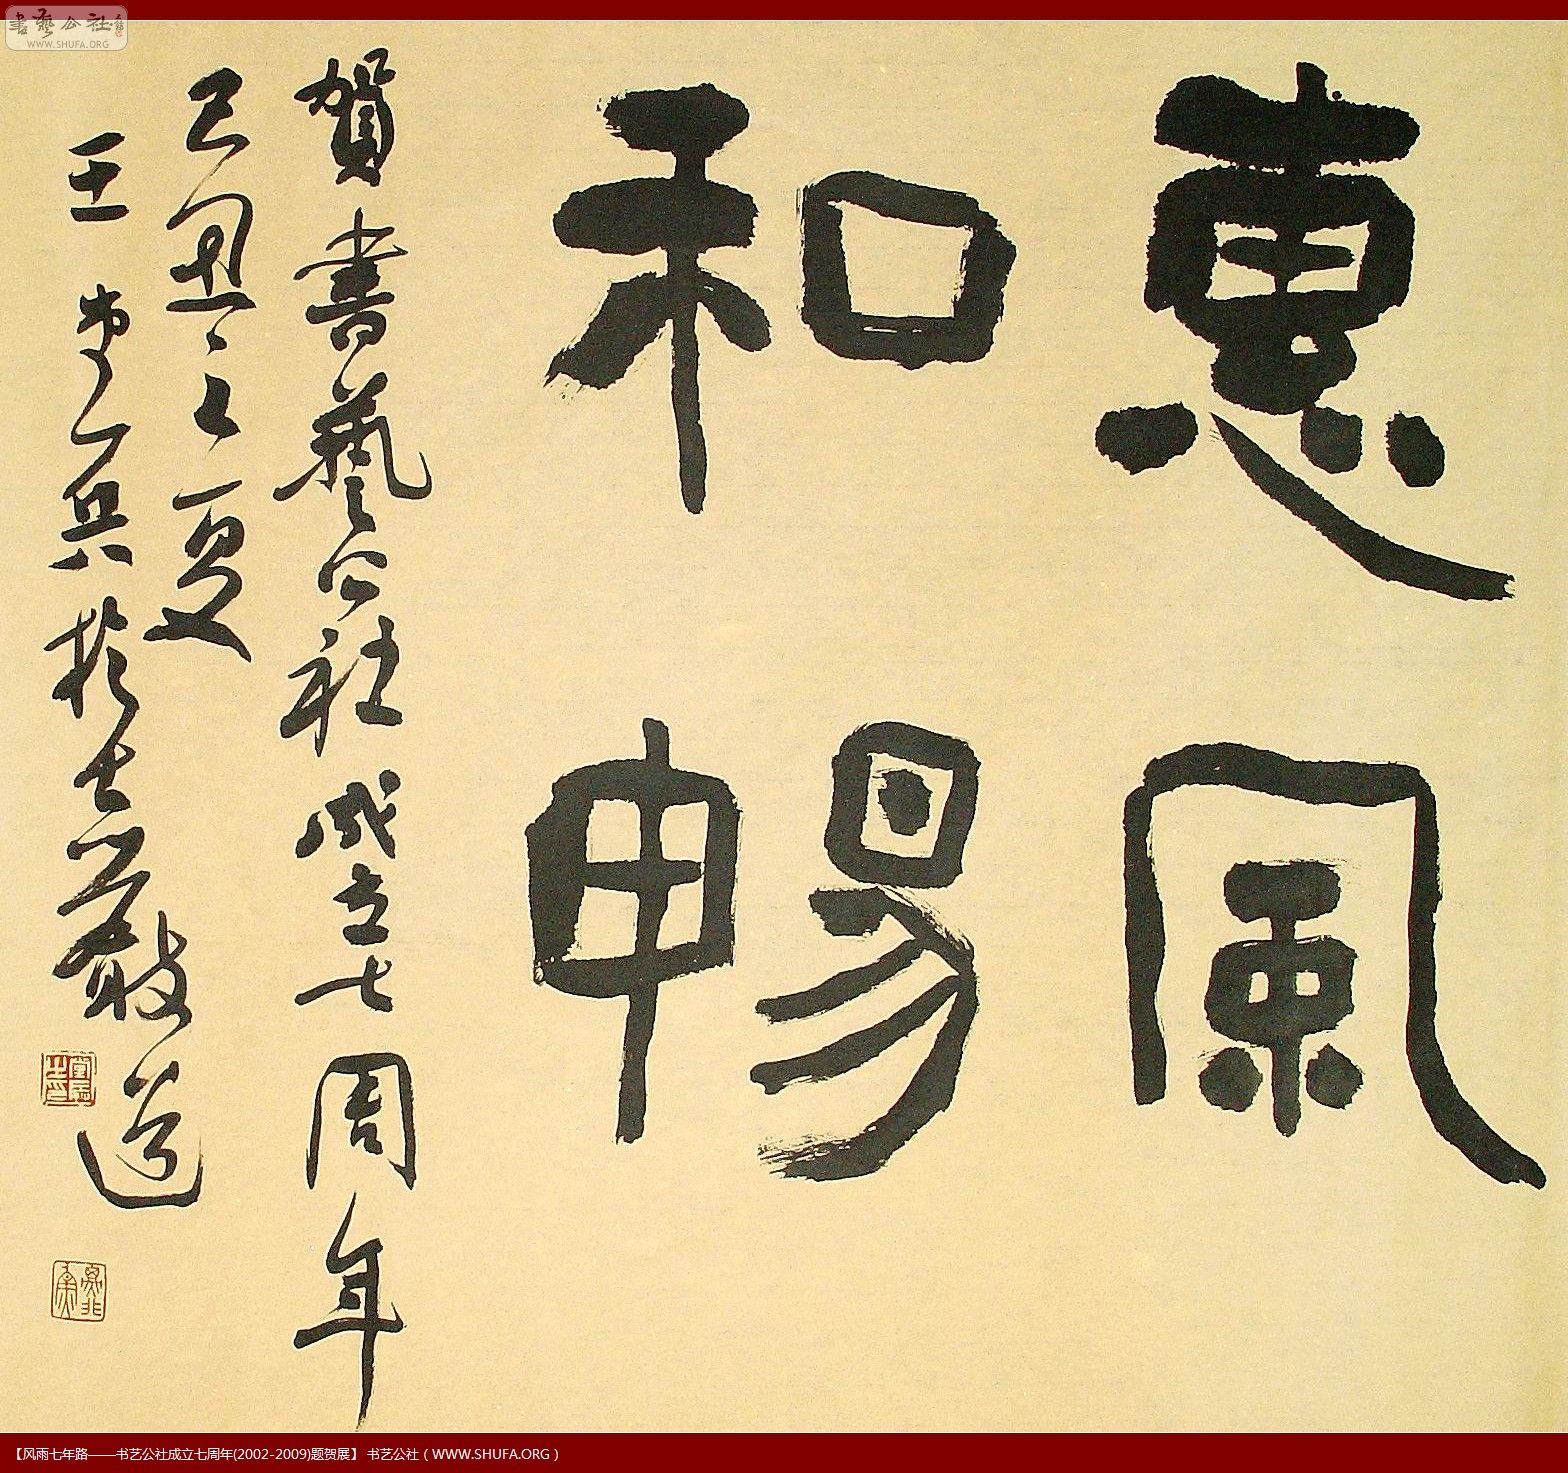 惠風
和暢
賀書藝公社成立七周年
己丑之夏
王堂兵於
書藝公社
WWW.SHUFA.ORG
【风雨七年路——书艺公社成立七周年(2002-2009)题贺展】 书艺公社 ( WWW.SHUFA.ORG )